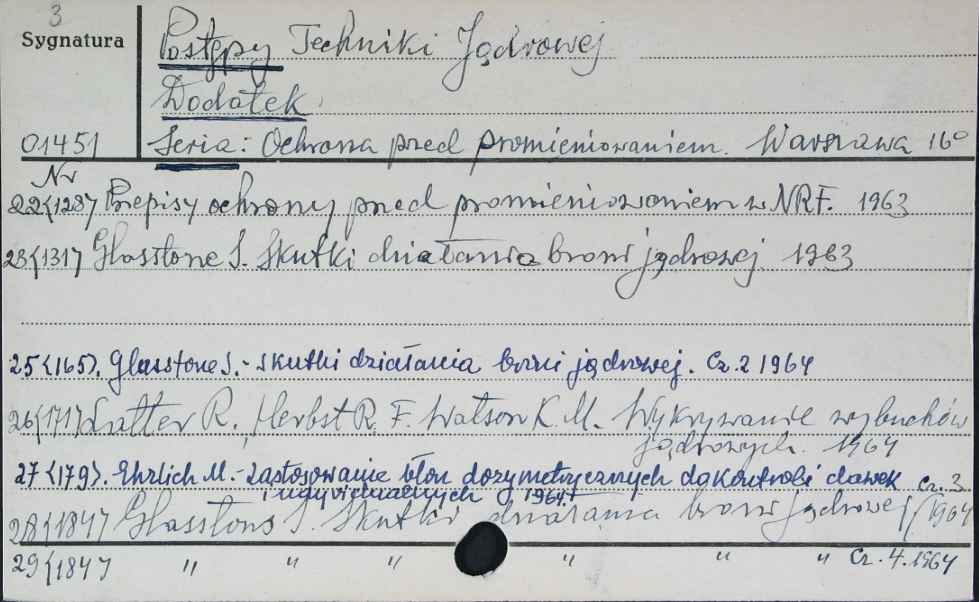 3
Sygnatura
Postępy Techniki Jądrowej
Dodatek
01451 Seria: Ochrona przed promieniowaniem. Warszawa 16°
Nr
22<128> Przepisy ochrony przed promieniowaniem w NRF. 1963
23<131> Glasstone S. Skutki działania broni jądrowej 1963
25<165>. Glasstone S. - Skutki działania broni jądrowej. Cz. 2 1964
26<171> Latter R., Herbst R. F. Watson K. M. Wykrywanie wybuchów
jądrowych. 1964
27<179>. Ehrlich M. - Zastosowanie błon dozymetrycznych do kontroli dawek
indywidualnych 1964
cz. 3
28<184> Glasstone S. Skutki działania broni jądrowej 1964
29<184> " " " " " " cz. 4. 1964